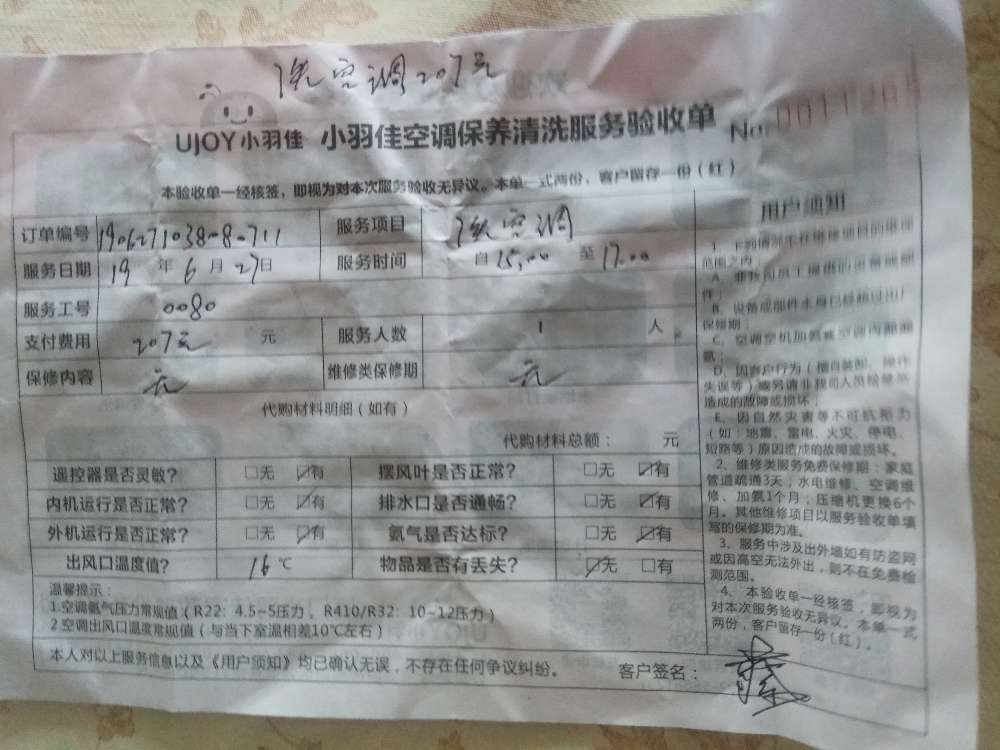 洗空调207元
UJOY小羽佳 小羽佳空调保养清洗服务验收单 No.
本验收单一经核签，即视为对本次服务验收无异议。本单一式两份，客户留存一份（红）
订单编号 1906271038-8-711 服务项目 洗空调
服务日期 19 年 6 月 27 日 服务时间 自 15:00 至 17:00
服务工号 0080
支付费用 207元 元 服务人数 1 人
保修内容 无 维修类保修期 无
代购材料明细（如有）
代购材料总额： 元
遥控器是否灵敏? □无 ☑有 摆风叶是否正常? □无 ☑有
内机运行是否正常? □无 ☑有 排水口是否通畅? □无 ☑有
外机运行是否正常? □无 ☑有 氨气是否达标? □无 ☑有
出风口温度值? 16 ℃ 物品是否有丢失? ☑无 □有
温馨提示：
1.空调氨气压力常规值（R22: 4.5-5压力，R410/R32: 10-12压力）
2.空调出风口温度常规值（与当下室温相差10℃左右）
本人对以上服务信息以及《用户须知》均已确认无误，不存在任何争议纠纷。 客户签名：
用户须知
范围之内：
B、设备或部件本身已经超过出厂
保修期；
D、因客户行为（擅自装困、操作
失误等）或另请非我司人员检修所
造成的故障或损坏；
E、因自然灾害等不可抗拒力
（如：地震、雷电、火灾、停电、
短路等）原因造成的故障或损坏。
2、维修类服务免费保修期：家庭
管道疏通3天；水电维修、空调维
修、加氨1个月；压缩机更换6个
月。其他维修项目以服务验收单填
写的保修期为准。
3、服务中涉及出外墙如有防盗网
或因高空无法外出，则不在免费检
测范围。
4、本验收单一经核签，即视为
对本次服务验收无异议。本单一式
两份，客户留存一份（红）。